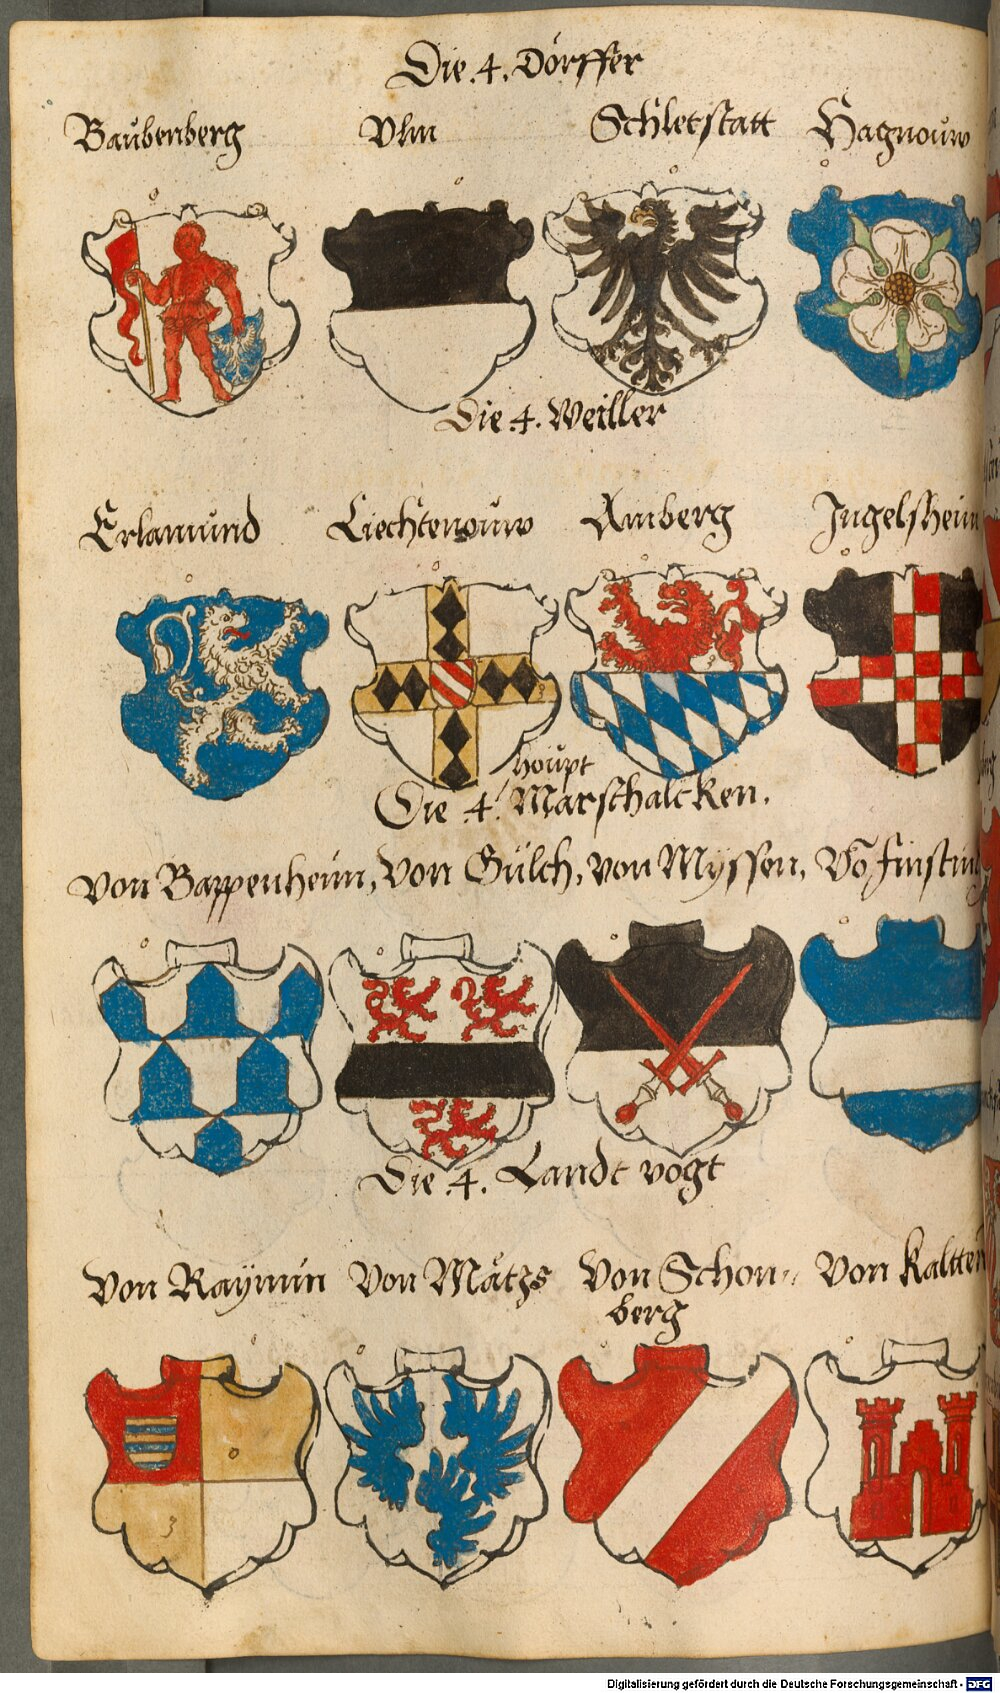 Die .4. Dörffer
Baubenberg Vlm Schletstatt Hagnouw
Die .4. Weiller
Erlamund Liechtenouw Amberg Ingelsheim
houpt
Die 4. Marschalcken.
von Bappenheim, von Gülch, von Myssen, Vō finsting
Die .4. Landt vogt
von Raymin von Mätzs von Schon- von Kaltten
berg
Digitalisierung gefördert durch die Deutsche Forschungsgemeinschaft - DFG